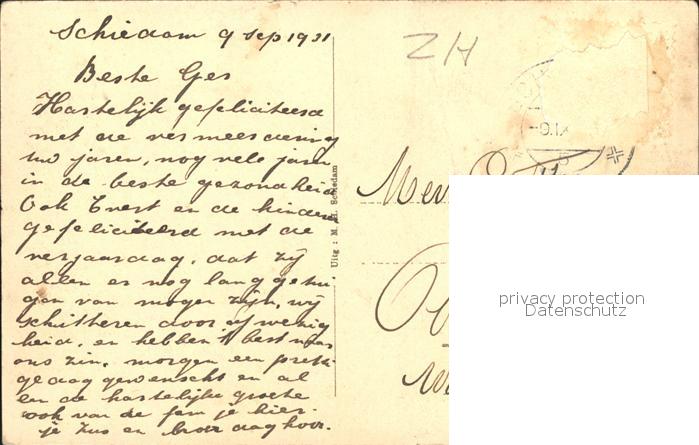 Schiedam 9 sep 1931
ZH
Beste Ger
Hartelijk gefeliciteerd
met de vermeerdering
uw jaren, nog vele jaren
in de beste gezondheid
Ook Evert en de kinderen
gefeliciteerd met de
verjaardag, dat zij
allen er nog lang getui
gen van moger zijn, wij
schitteren door afwezig
heid, en hebben 't best naar
ons zin, morgen een pretti
ge dag gewenscht en al
len de hartelijke groete
ook van de fam je hier.
je zus en broer dag hoor.
Uitg : M. Schiedam
-9.IX
Mev
privacy protection
Datenschutz